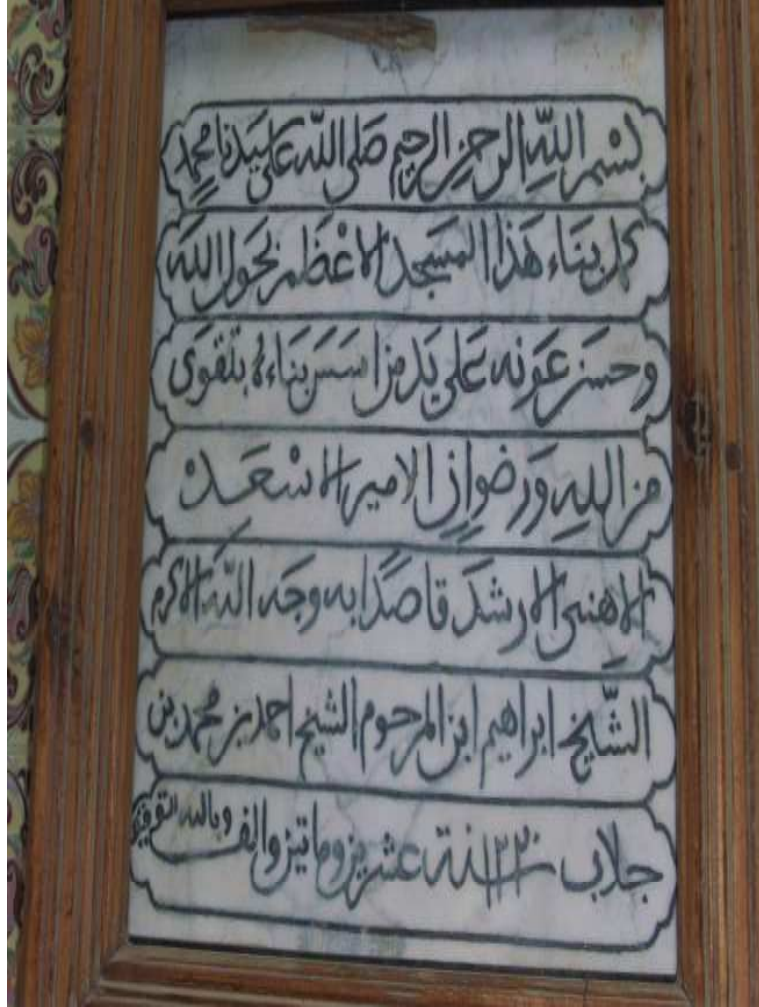 بسم الله الرحمن الرحيم صلى الله على سيدنا محمد
كمل بناء هذا المسجد الاعظم بحول الله
وحسن عونه على يد من اسس بناءه بتقوى
من الله ورضوان الامير الاسعد
الاهنى الارشد قاصدا به وجه الله الاكرم
الشيخ ابراهيم ابن المرحوم الشيخ احمد بن محمد بن
جلاب ١٢٢٠ سنة عشرين وماتين والف وبالله التوفيق